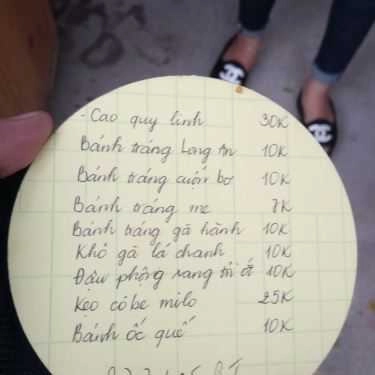 - Cao quy linh 30K
Bánh tráng Long tn 10K
Bánh tráng cuốn bơ 10K
Bánh tráng me 7K
Bánh tráng gà hành 10K
Khô gà lá chanh 10K
Đậu phộng rang tỏi ớt 10K
Kẹo cóbe milo 25K
Bánh ốc quế 10K